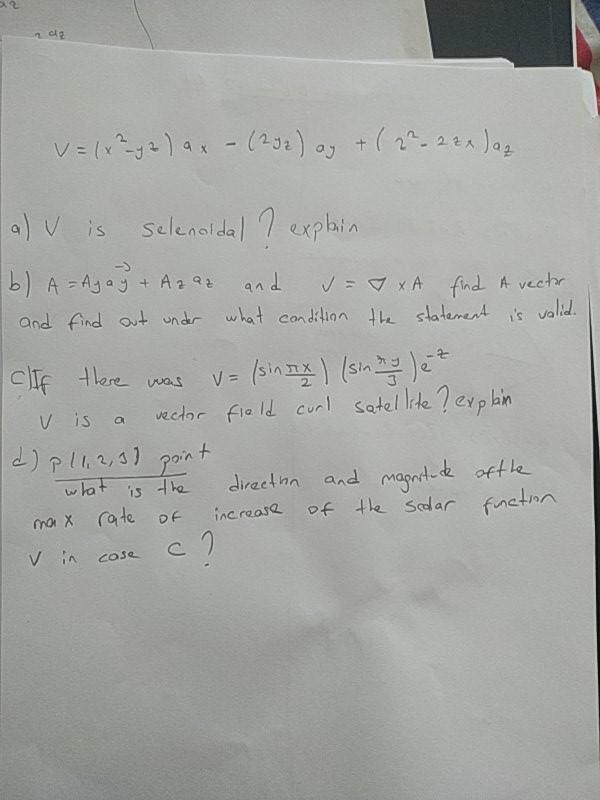 az
2 az
V = (x²-yz) ax - (2yz) ay + (z² - 2zx) az
a) V is selenoidal? explain
b) A = Ay ay + Az az and V = ∇ x A find A vector
and find out under what condition the statement is valid.
c) If there was V = (sin πx/2) (sin πy/3) e^-z
V is a vector field curl satellite? explain
d) p(1,2,3) point
what is the direction and magnitude of the
max rate of increase of the scalar function
V in case C?